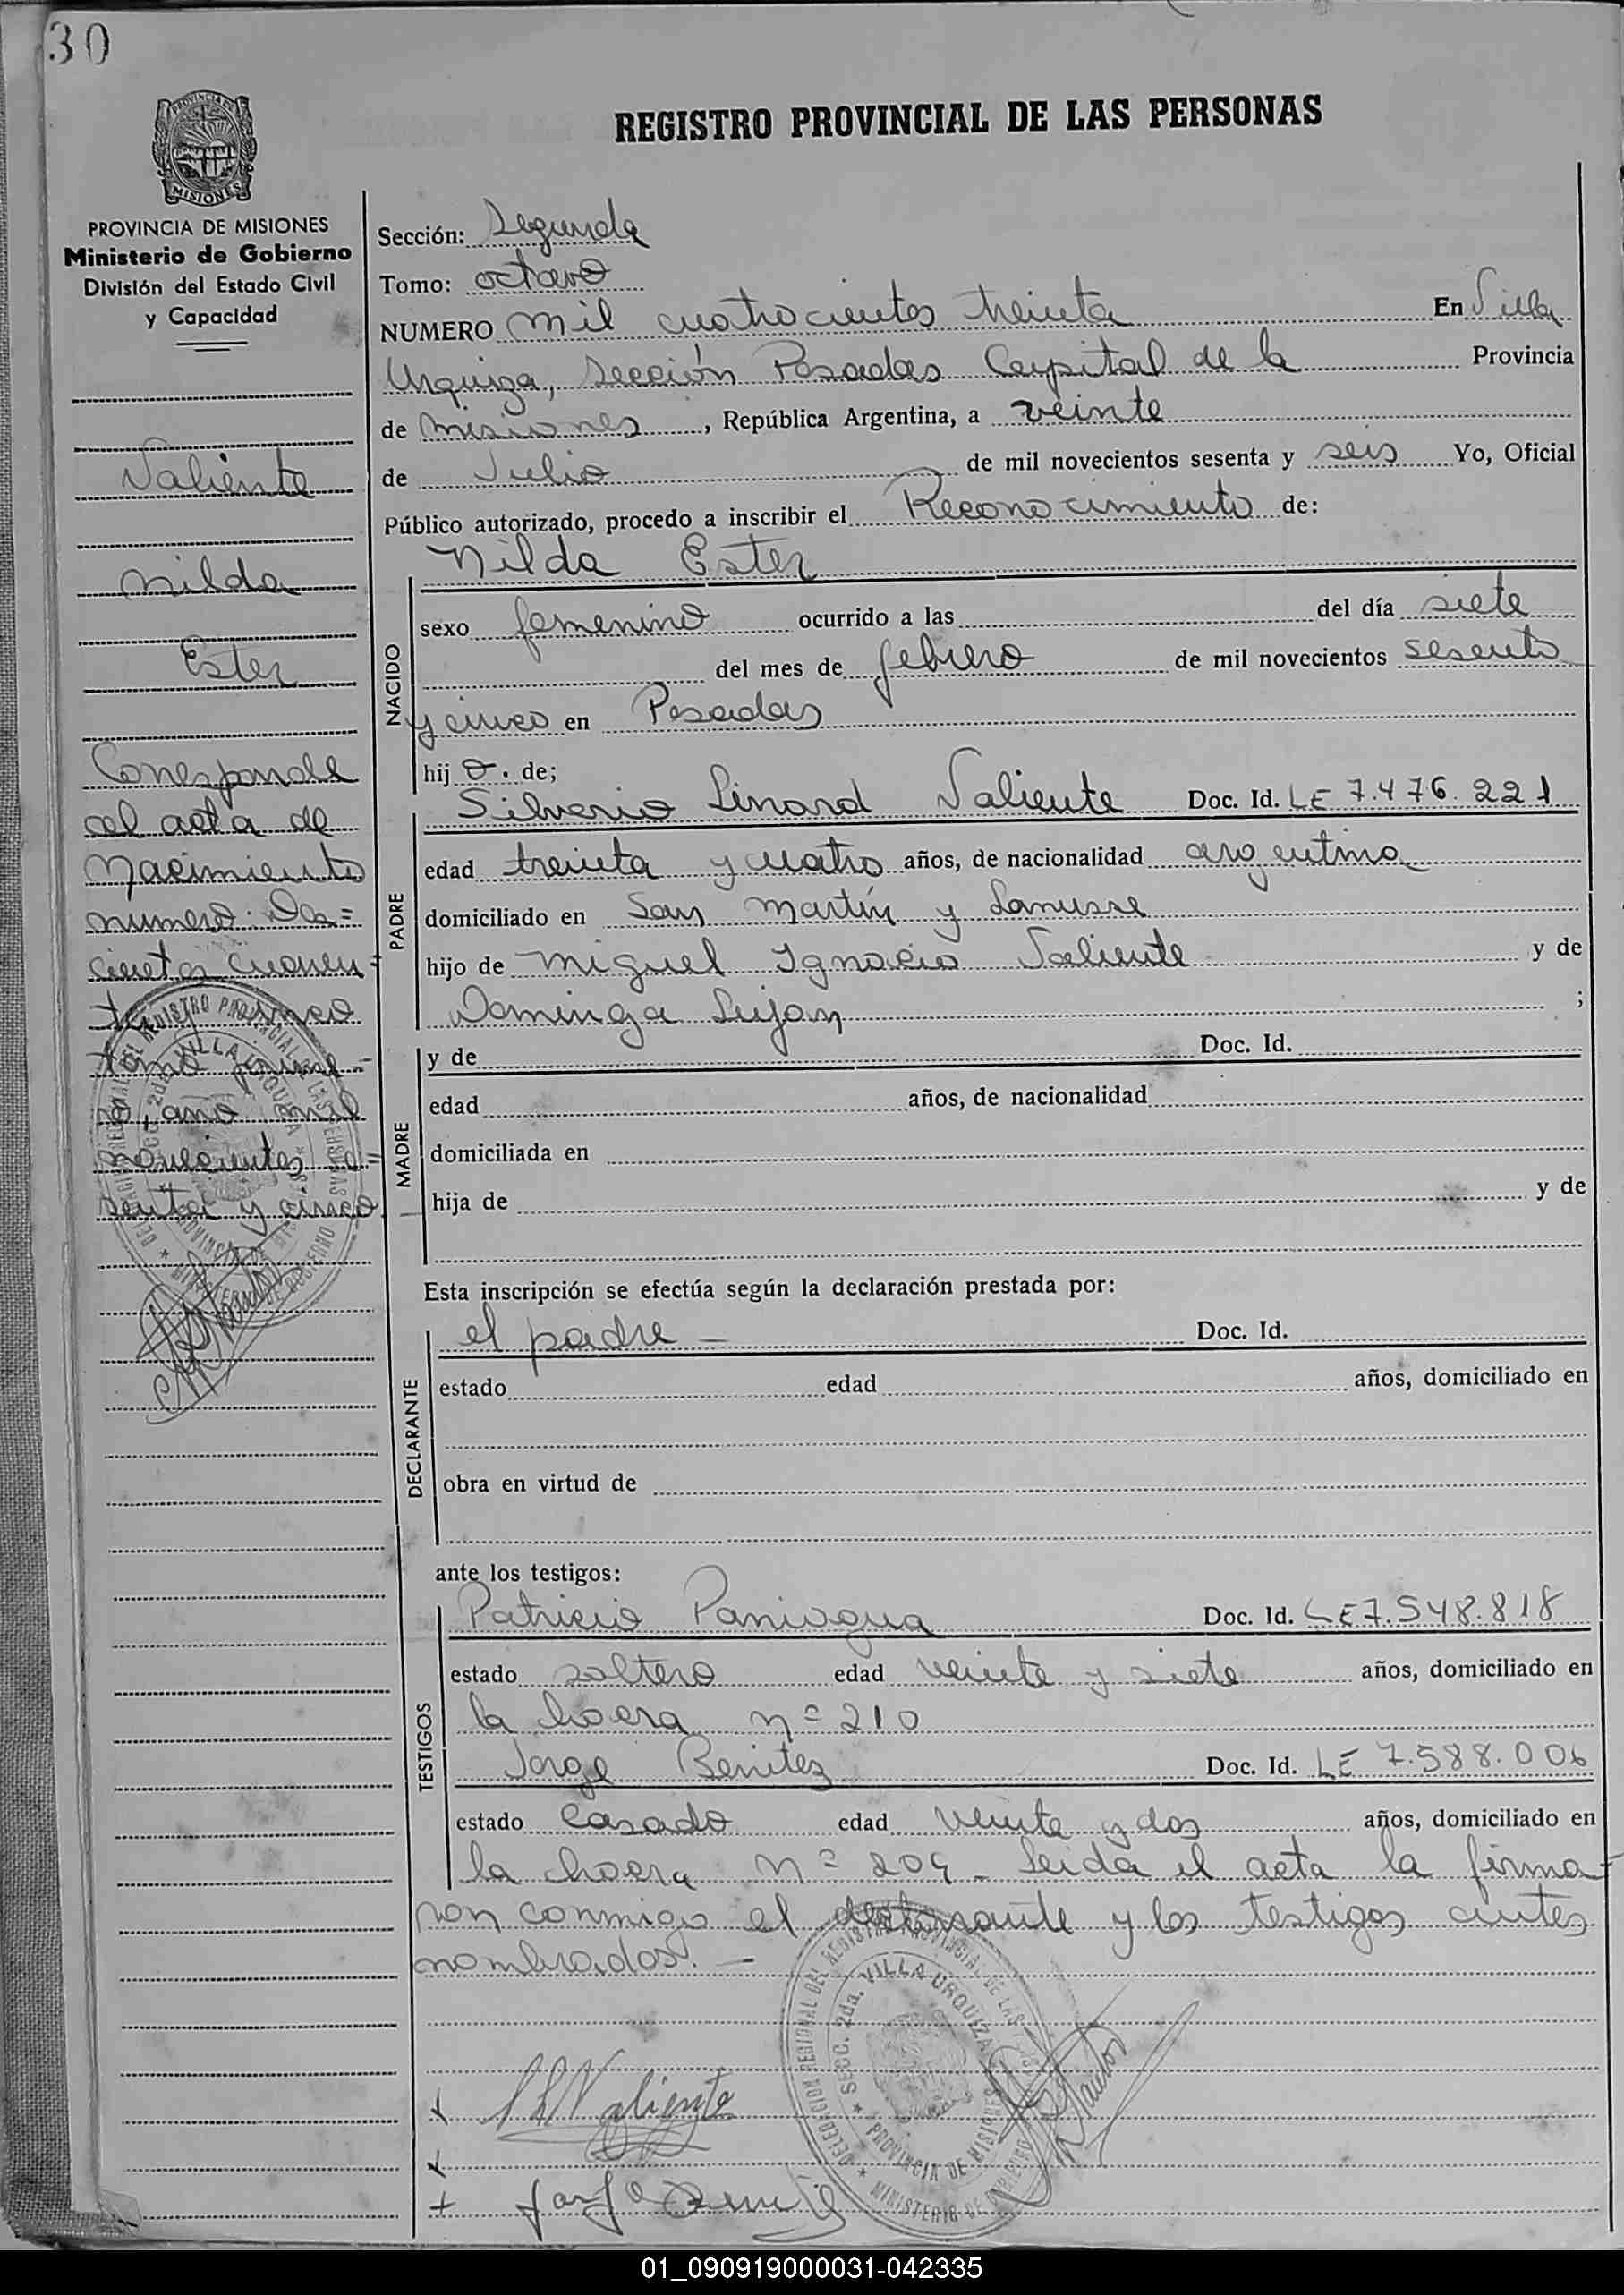 30
REGISTRO PROVINCIAL DE LAS PERSONAS
PROVINCIA DE MISIONES
Ministerio de Gobierno
División del Estado Civil
y Capacidad
Valiente
Nilda
Ester
Corresponde
al acta de
Nacimiento
numero: Dos=
cientos cuaren=
ta y cinco
tomo prime-
ro, año mil
novecientos se=
senta y cinco
Sección: Segunda
Tomo: octavo
NUMERO mil cuatrocientos treinta En Villa
Urquiza, Sección Posadas Capital de la Provincia
de Misiones, República Argentina, a veinte
de Julio de mil novecientos sesenta y seis Yo, Oficial
Público autorizado, procedo a inscribir el Reconocimiento de:
NACIDO
Nilda Ester
sexo femenino ocurrido a las del día siete
del mes de febrero de mil novecientos sesenta
y cinco en Posadas
hij a. de;
PADRE
Silverio Linord Valiente Doc. Id. LE 7.476.221
edad treinta y cuatro años, de nacionalidad argentina
domiciliado en San Martín y Lanusse
hijo de Miguel Ignacio Valiente y de
Dominga Lujan ;
MADRE
y de Doc. Id.
edad años, de nacionalidad
domiciliada en
hija de y de
Esta inscripción se efectúa según la declaración prestada por:
DECLARANTE
el padre - Doc. Id.
estado edad años, domiciliado en
obra en virtud de
ante los testigos:
TESTIGOS
Patricio Paniagua Doc. Id. LE 7.548.818
estado soltero edad veinte y siete años, domiciliado en
la chacra nº 210
Jorge Benitez Doc. Id. LE 7.588.006
estado Casado edad veinte y dos años, domiciliado en
la chacra nº 209 - leida el acta la firma-
ron conmigo el declarante y los testigos antes
nombrados. -
DELEGACION REGIONAL DEL REGISTRO PROVINCIAL DE LAS PERSONAS
SECC. 2da. VILLA URQUIZA
PROVINCIA DE MISIONES
MINISTERIO DE GOBIERNO
S L Valiente
01_090919000031-042335